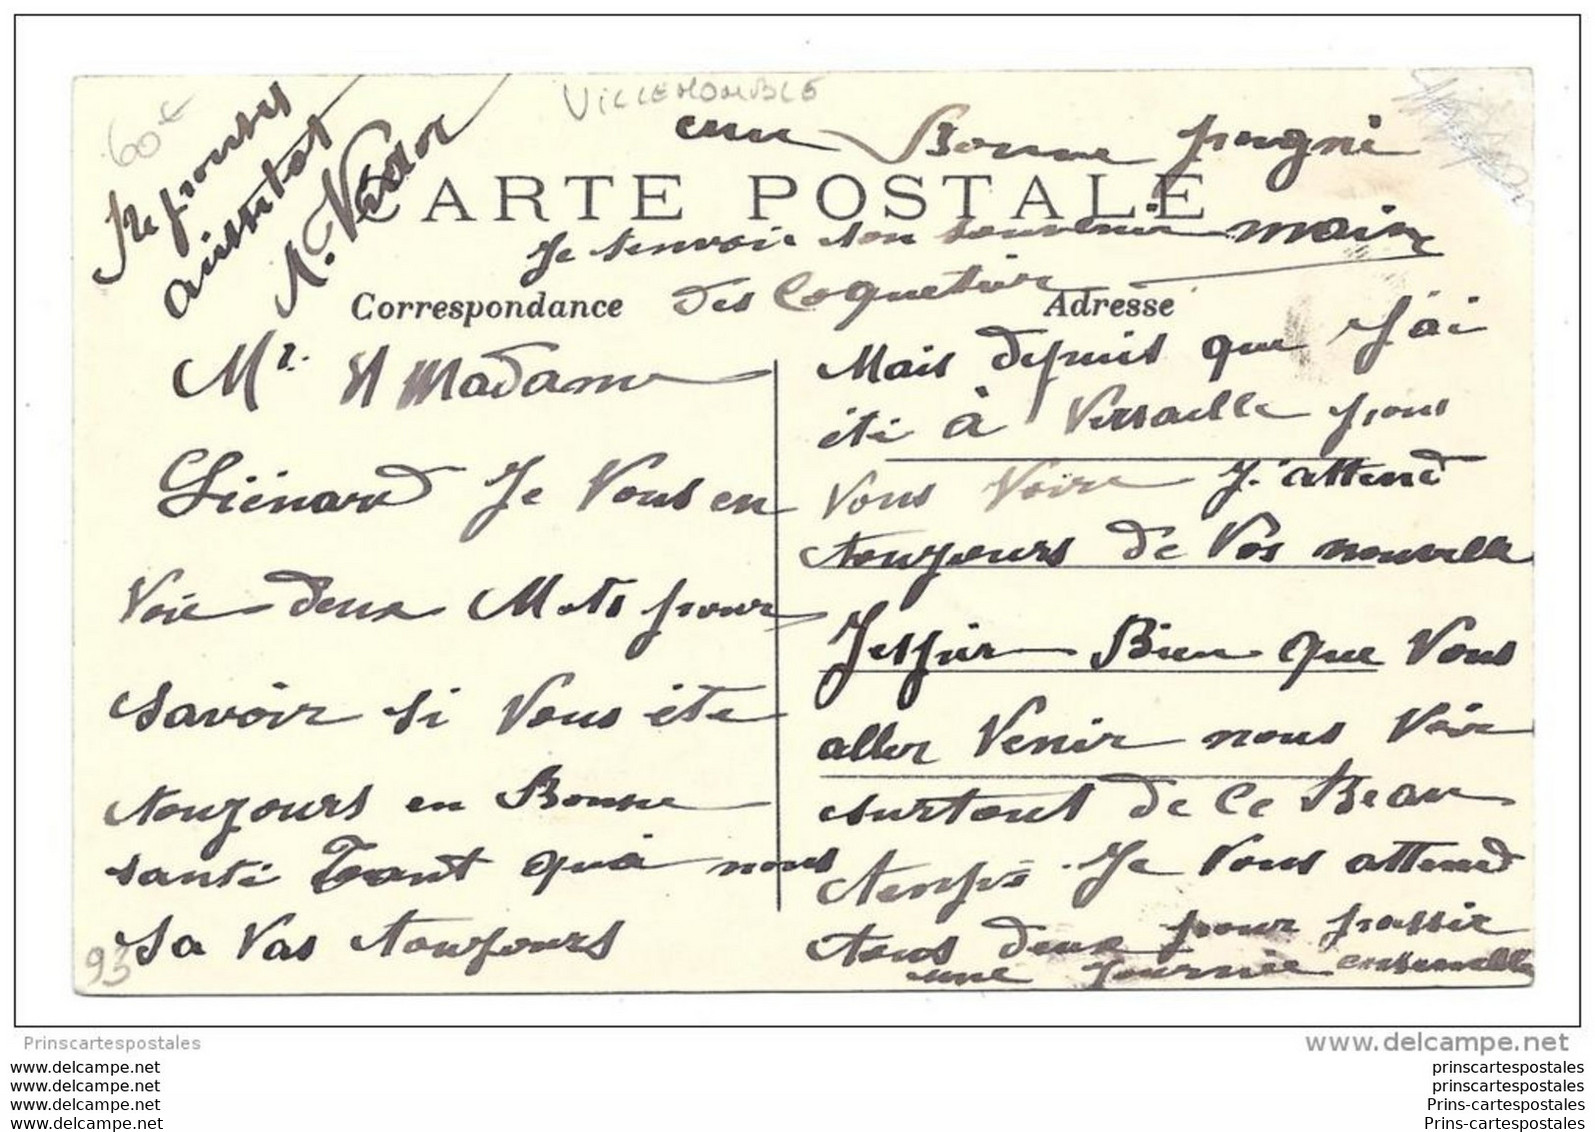 60 €
VILLEMOMBLE
Réponses
aussitot
A. Verdor
une Bonne pogné
CARTE POSTALE
Je tenvoie ton souvenir main
des Coquetier
Correspondance
Adresse
Mr. et Madame
Liénard Je Vous en
Voie deux Mots pour
savoir si Vous ête
toujours en Bonne
santé Tant qu'à nous
sa Vas toujours
93
Mais depuis que J'ai
été à Versaille pour
Vous Voire J'attend
toujours de Vos nouvelle
Jespair Bien que Vous
aller Venir nous Voir
surtout de Ce Beau
temps. Je Vous attend
tous deux pour passer
une journée ensemble
Prinscartespostales
www.delcampe.net
www.delcampe.com
prinscartespostales
www.delcampe.com
prinscartespostales
www.delcampe.com
Prins-cartespostales
www.delcampe.com
Prins-cartespostales